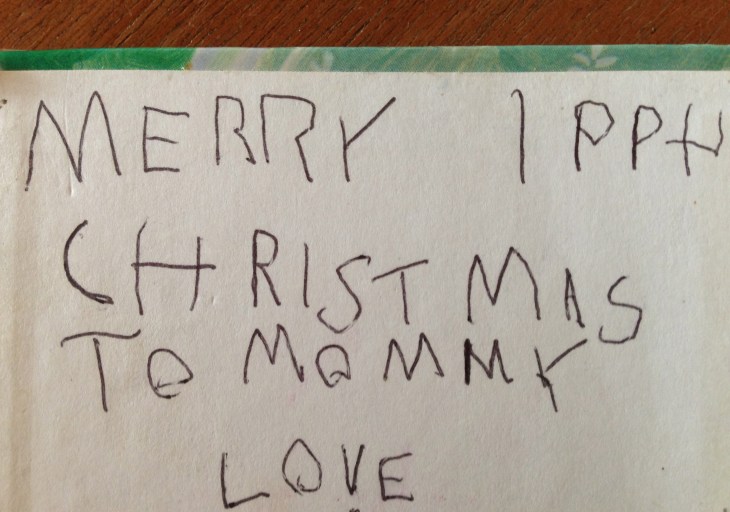 MERRY 1994
CHRISTMAS
TO MOMMY
LOVE